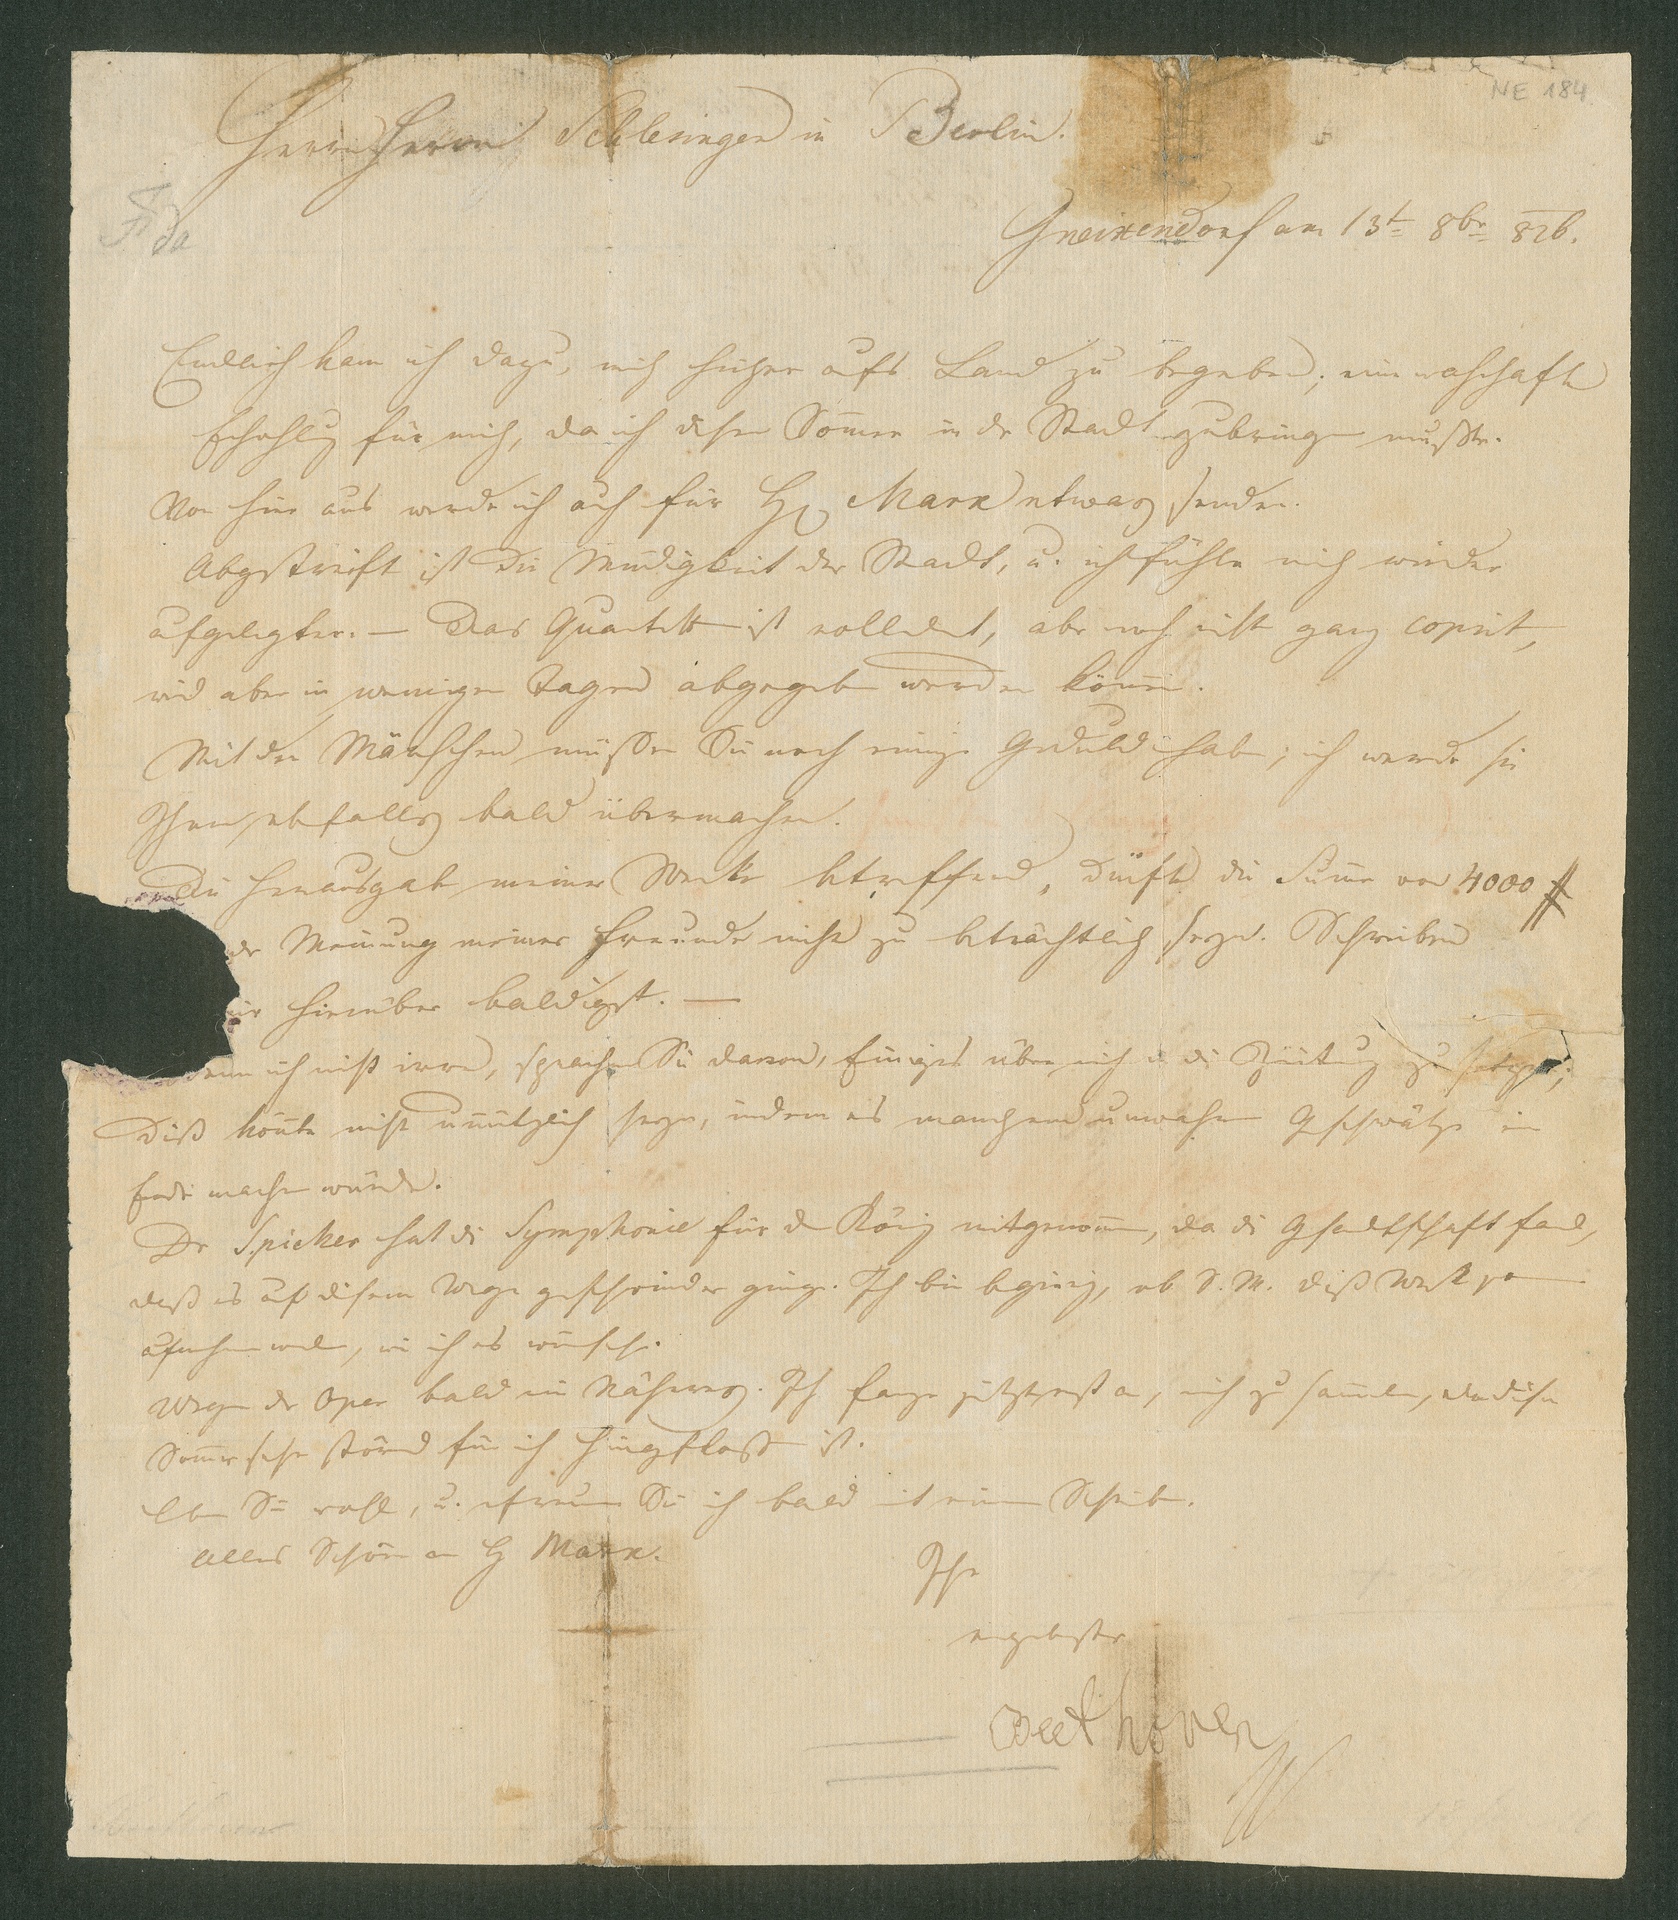 NE 184
Herrn Herrn Schlesinger in Berlin.
Gneixendorf am 13t 8br 826.
Endlich kam ich dazu, mich hieher aufs Land zu begeben; eine wahrhafte
Erhohlung für mich, da ich diesen Som̅er in der Stadt zubringen mußte.
Von hier aus werde ich auch für H. Marx etwas senden.
Abgestreift ist die Müdigkeit der Stadt, u. ich fühle mich wieder
aufgelegter. — Das Quartett ist vollendet, aber noch nicht ganz copirt,
wird aber in wenigen Tagen abgegeben werden können.
Mit den Märschen müssen Sie noch einige Geduld haben; ich werde sie
Ihnen ebenfalls bald übermachen.
Die Herausgabe meiner Werke betreffend, dürfte die Sum̅e von 4000 #
der Meinung meiner Freunde nicht zu beträchtlich seyn. Schreiben
mir hierüber baldigst. —
wenn ich nicht irre, sprachen Sie davon, Einiges über mich in die Zeitung zu setzen;
Diß könnte nicht unnützlich seyn, indem es manchem unwahren Geschwätze ein
Ende machen würde.
Dr Spicker hat die Symphonie für den König mitgenom̅en, da die Gesandtschaft fand,
daß es auf diesem Wege geschwinder ginge. Ich bin begierig, ob S. M. diß Werk so
aufnehmen werden, wie ich es wünsche.
Wegen der Oper bald ein Näheres. Ich fange jetzt erst an, mich zu sam̅eln, da dieser
Som̅er sehr störend für mich hingeflossen ist.
Leben Sie wohl, u. erfreuen Sie mich bald mit einem Schreiben.
Alles Schöne an H Marx.
Ihr
ergebenster
Beethoven